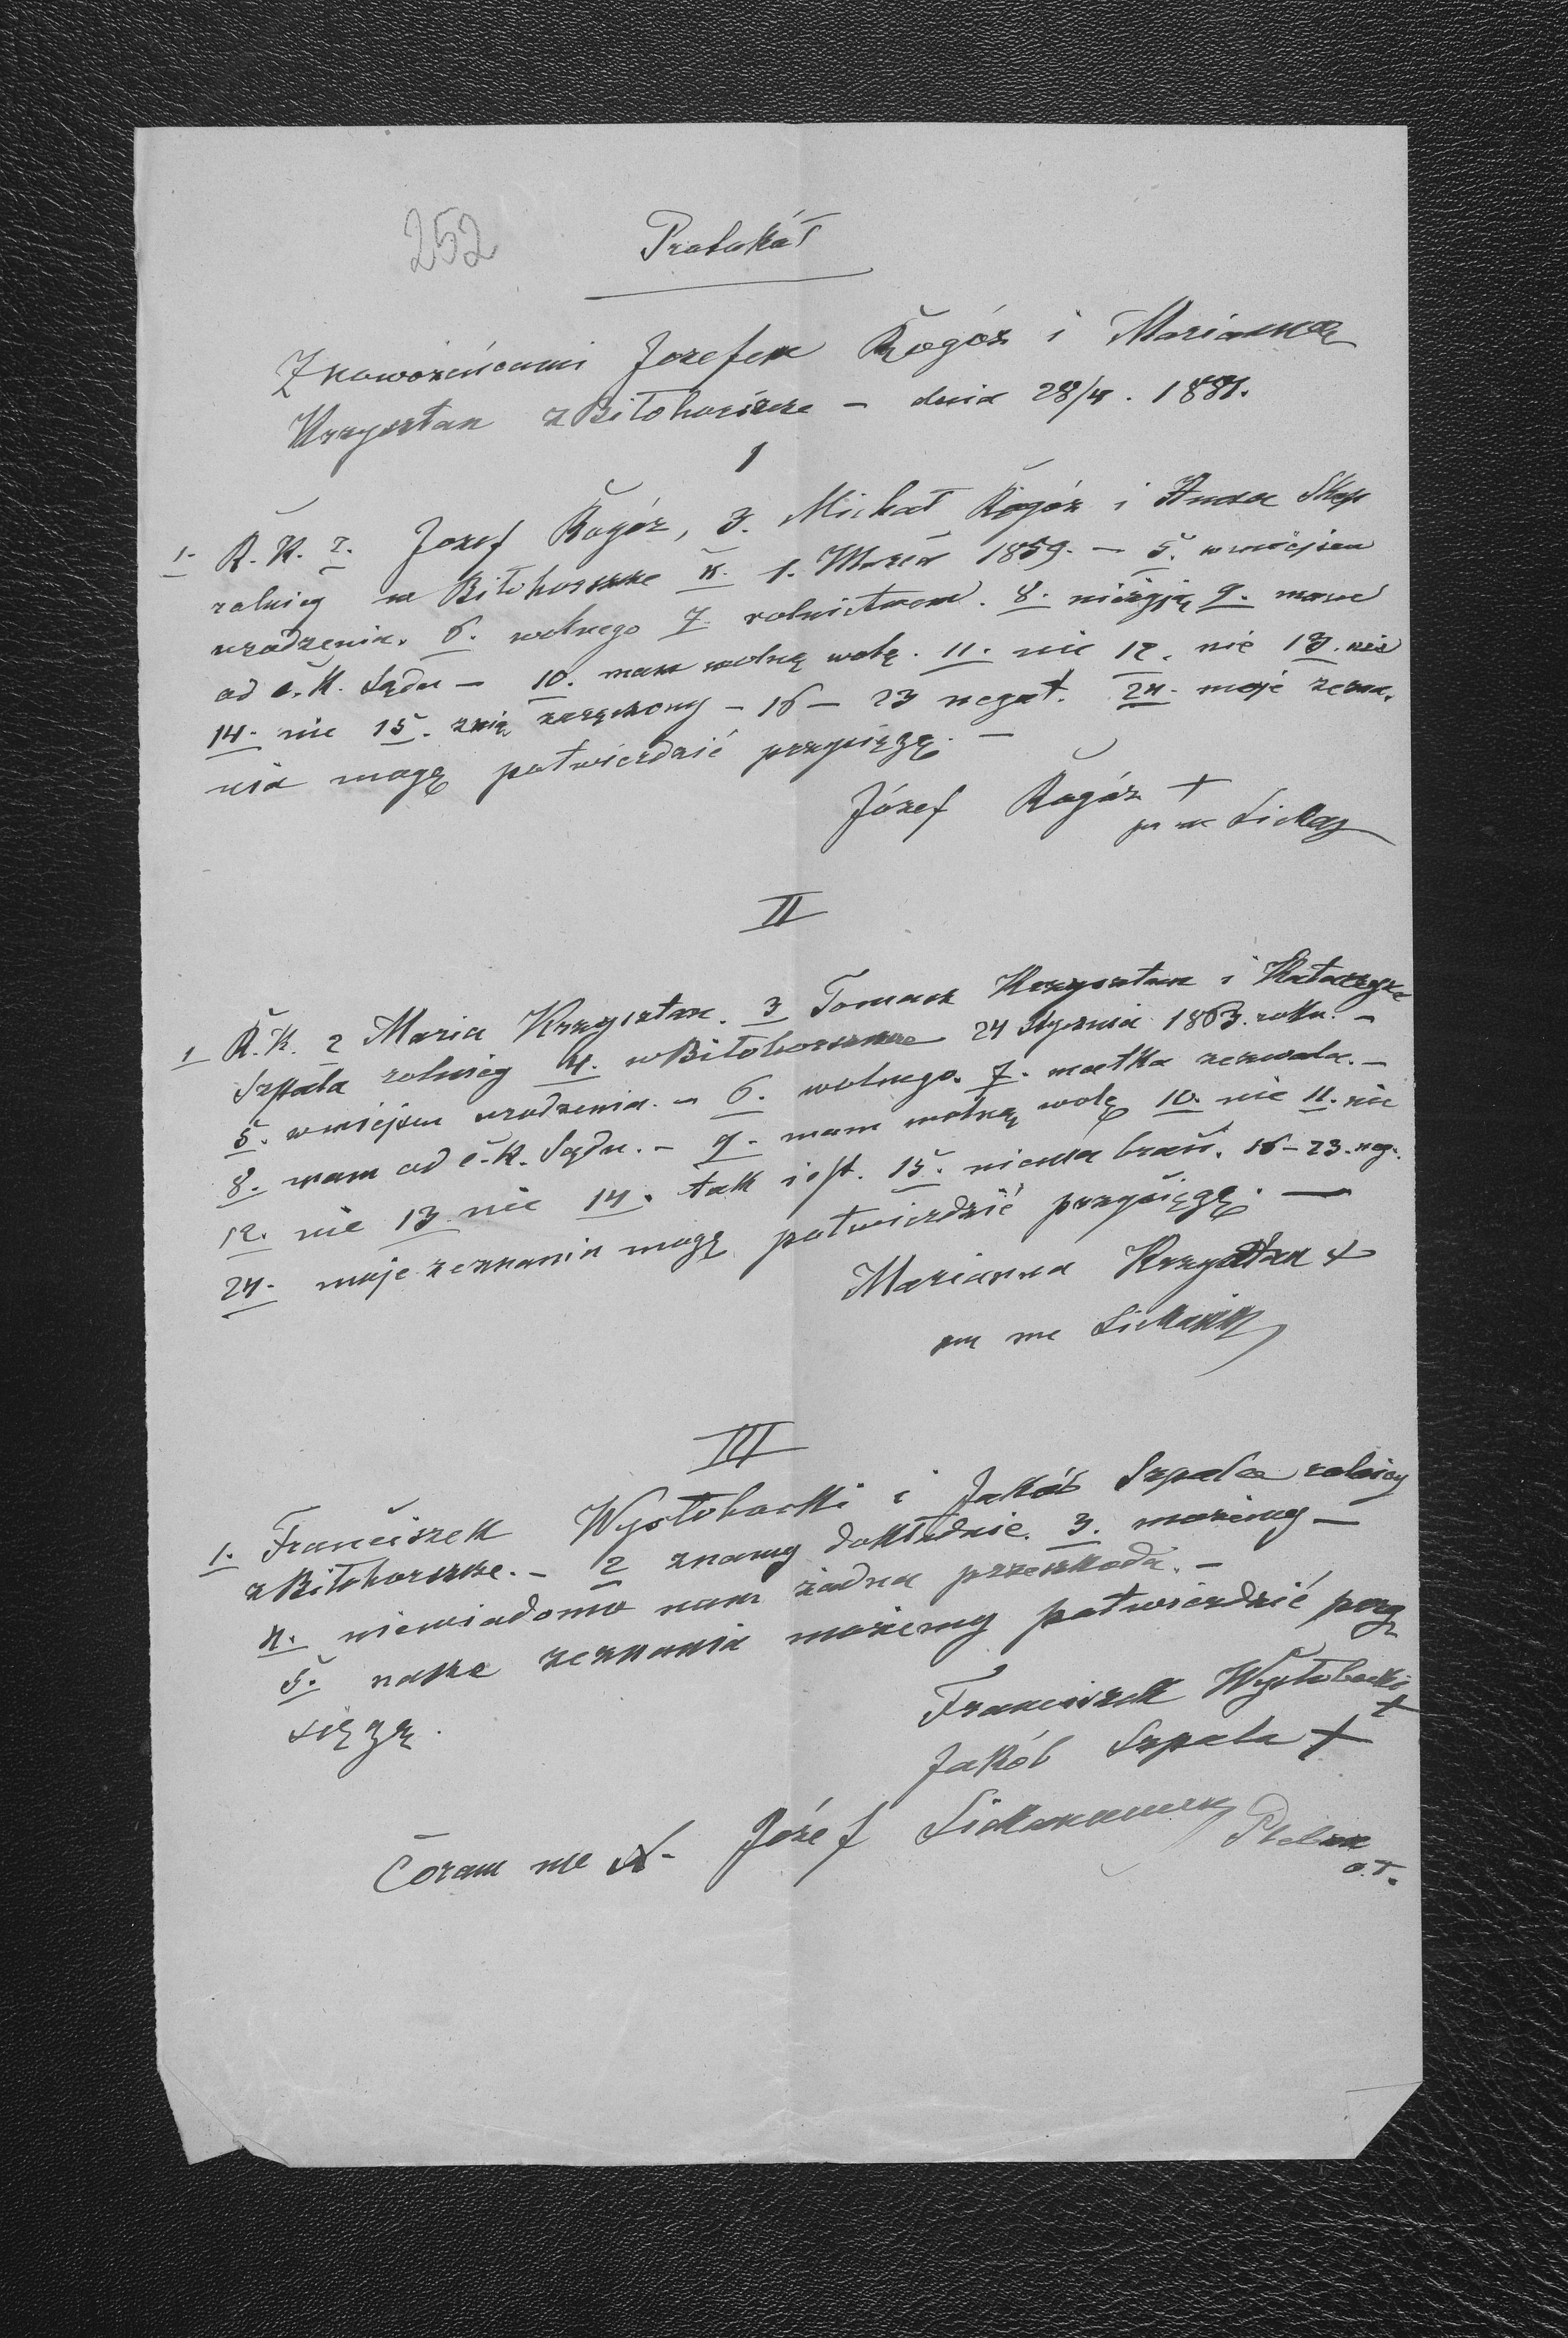 252
Protokół
Z nowożeńcami Jozefem Rogóz i Marianną
Krzysztan z Biłohorszcze – dnia 28/4. 1881.
I
1. R. K. 2. Jozef Rogóz, 3. Michał Rogóz i Anna Skop
rolnicy w Biłohorszcze 4. 1. Marca 1859. – 5. w miejscu
urodzenia. 6. wolnego 7. rolnictwem. 8. nieżyją 9. mam
od c. K. Sądu – 10. mam wolną wolę. 11. nie 12. nie 13. nie
14. nie 15. z nią zaręczony – 16 – 23 negat. 24. moje zezna-
nia mogę potwierdzić przysięgą. –
Józef Rogóz +
II
1 R. K. 2 Maria Krzysztan. 3 Tomasz Krzysztan i Katarzyna
Szpala rolnicy 4. w Biłohorszcze 24 Stycznia 1863. roku. –
5. w miejscu urodzenia. – 6. wolnego. 7. matka zezwala. –
8. mam od c. K. Sądu. – 9. mam wolną wolę 10. nie 11. nie
12. nie 13 nie 14. tak jest. 15. nie ma brań. 16 – 23. neg.
24. moje zeznania mogę potwierdzić przysięgą. —
Marianna Krzysztan +
III
1. Franciszek Wysłobocki i Jakób Szpala rolnicy
z Biłohorszcze. – 2 znamy dokładnie. 3. możemy –
4. niewiadomo nam żadna przeszkoda. –
5. nasze zeznania możemy potwierdzić przy
sięgą.
Franciszek Wysłobocki
+
Jakób Szpala +
Coram me X. Józef